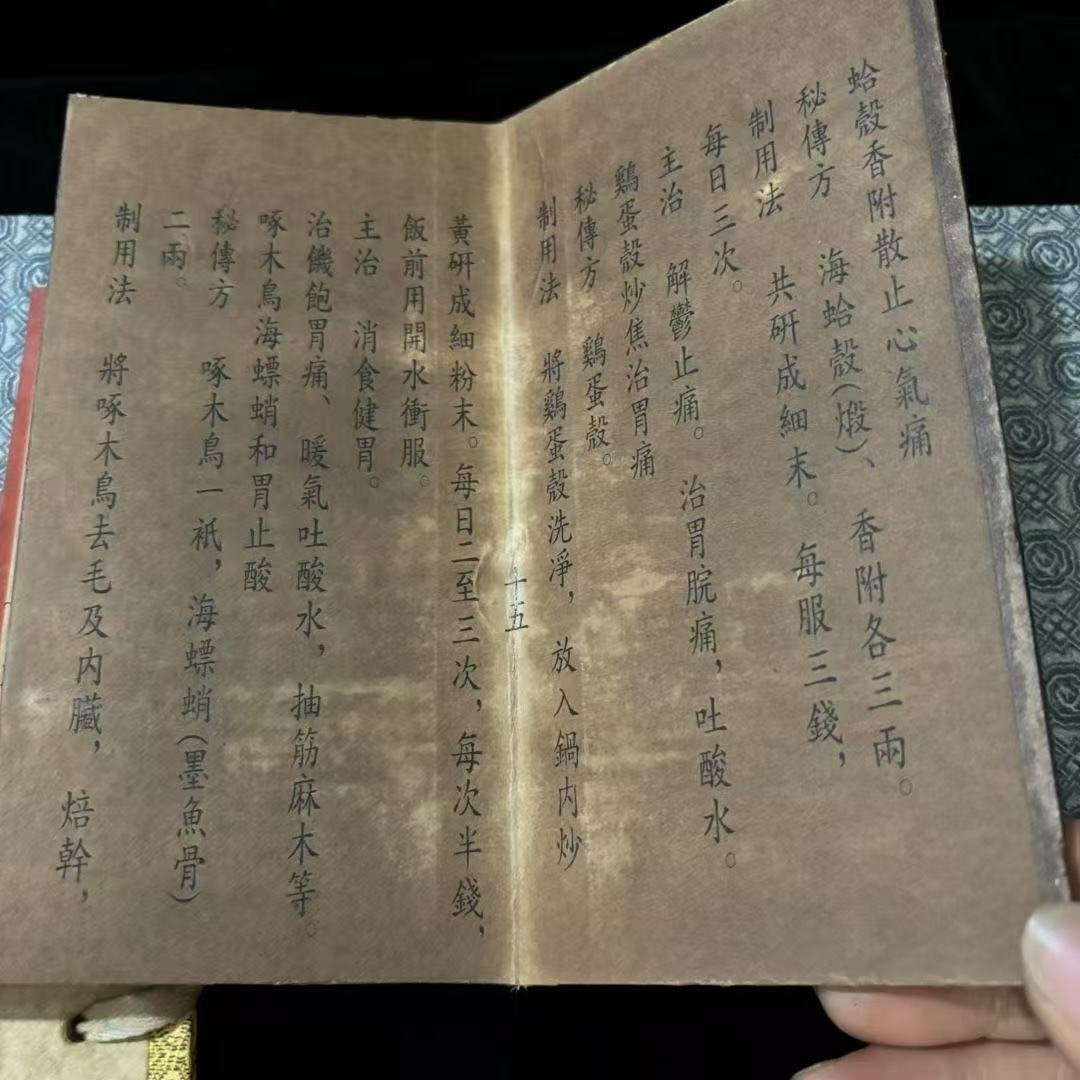 蛤殼香附散止心氣痛
秘傳方 海蛤殼(煅)、香附各三兩。
制用法 共研成細末。每服三錢，
每日三次。
主治 解鬱止痛。治胃脘痛，吐酸水。
鷄蛋殼炒焦治胃痛
秘傳方 鷄蛋殼。
制用法 將鷄蛋殼洗淨，放入鍋内炒
十五
黃研成細粉末。每日二至三次，每次半錢，
飯前用開水衝服。
主治 消食健胃。
治饑飽胃痛、暖氣吐酸水，抽筋麻木等。
啄木鳥海螵蛸和胃止酸
秘傳方 啄木鳥一衹，海螵蛸(墨魚骨)
二兩。
制用法 將啄木鳥去毛及内臟，焙幹，